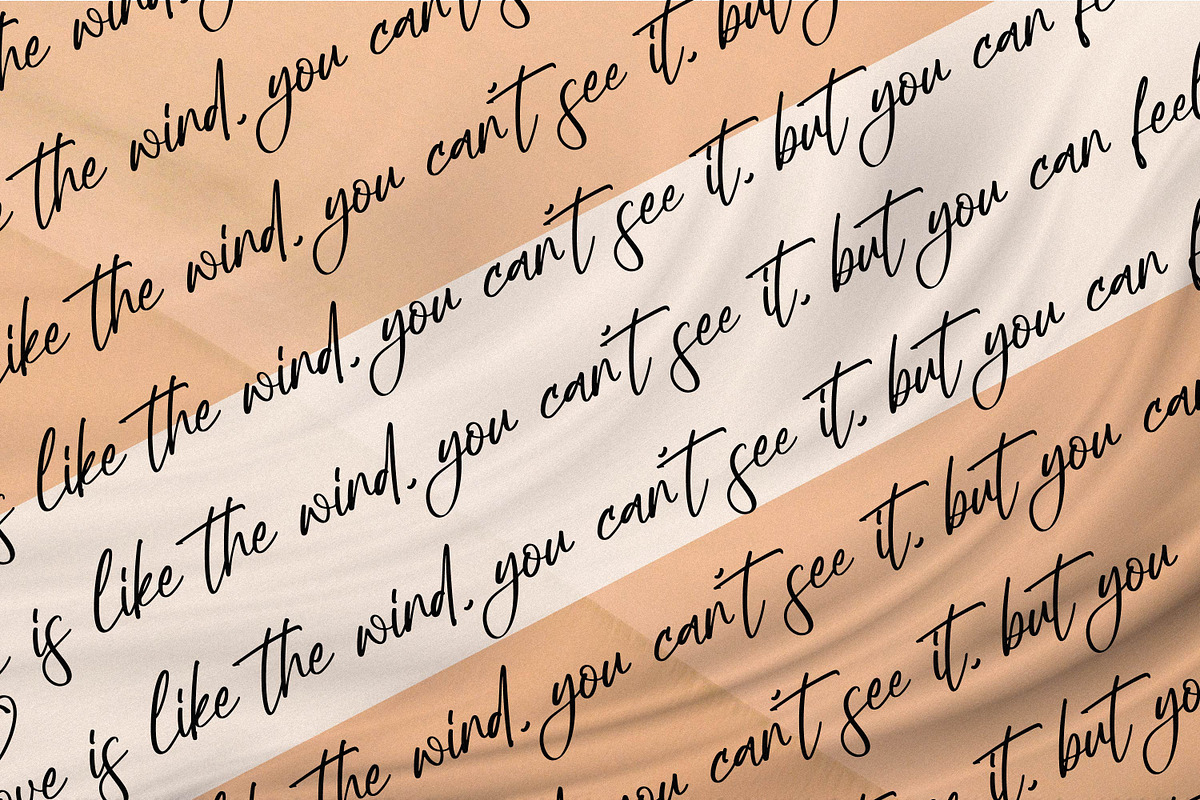 the wind, you
the wind, you can't
like the wind, you can't see it, but you
is like the wind, you can't see it, but you can
is like the wind, you can't see it, but you can feel
ove is like the wind, you can't see it, but you can
like the wind, you can't see it, but you can
you can't see it, but you
it, but you